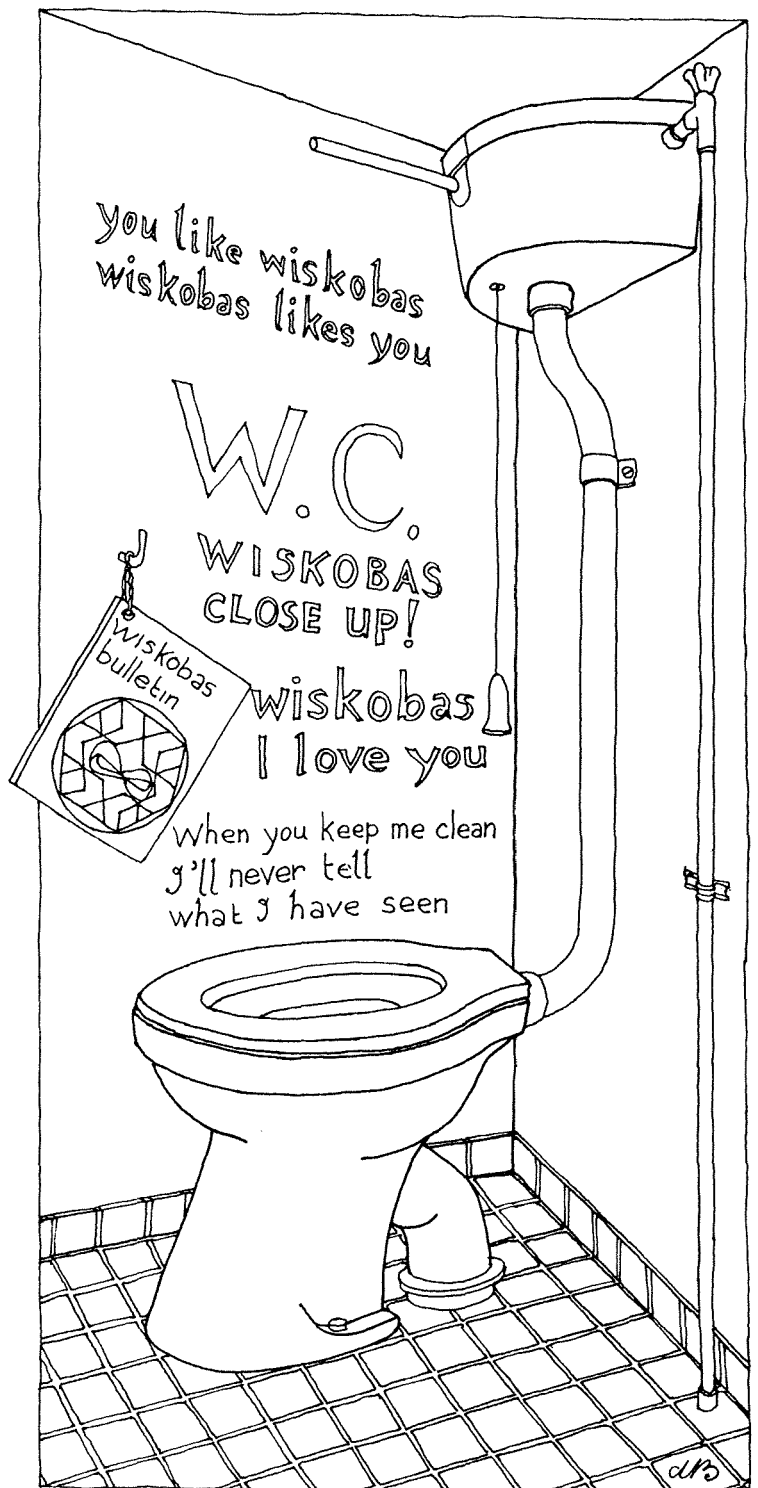 you like wiskobas
wiskobas likes you
W.C.
WISKOBAS
CLOSE UP!
wiskobas
bulletin
wiskobas
I love you
When you keep me clean
I'll never tell
what I have seen
dB